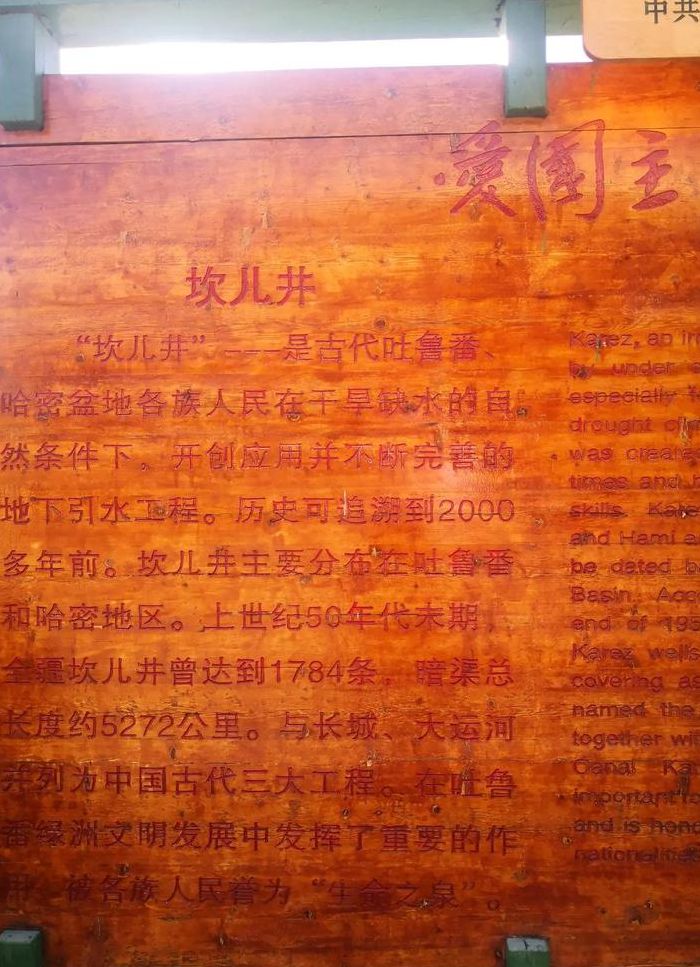 中共
愛國主
坎儿井
“坎儿井”---是古代吐鲁番、
哈密盆地各族人民在干旱缺水的自
然条件下，开创应用并不断完善的
地下引水工程。历史可追溯到2000
多年前。坎儿井主要分布在吐鲁番
和哈密地区。上世纪50年代末期，
全疆坎儿井曾达到1784条，暗渠总
长度约5272公里。与长城、大运河
并列为中国古代三大工程。在吐鲁
番绿洲文明发展中发挥了重要的作
用，被各族人民誉为“生命之泉”。
Karez, an
by under
especially
drought
was created
times and
skills.
and Hami
be dated
Basin.
and of
Karez wells
covering as
named the
together
Canal
important
and is